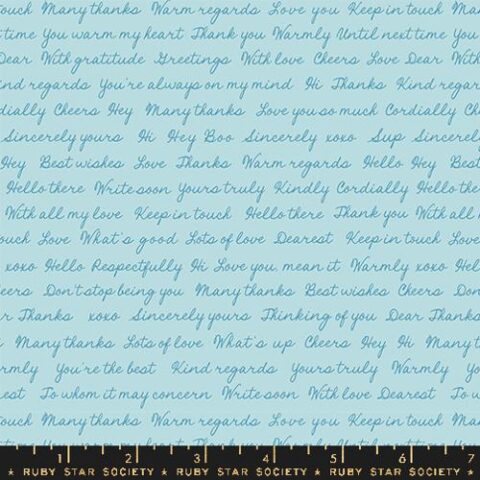 ouch Many thanks Warm regards Love you Keep in touch Many
time You warm my heart Thank you Warmly Until next time You
Dear With gratitude Greetings With love Cheers Love Dear With
ind regards You're always on my mind Hi Thanks Kind regar
dially Cheers Hey Many thanks Love you so much Cordially Ch
Sincerely yours Hi Hey Boo Sincerely xoxo Sup Sincerel
Hey Best wishes Love Thanks Warm regards Hello Hey Best
Hello there Write soon Yours truly Kindly Cordially Hello the
With all my love Keep in touch Hello there Thank you With all
ouch Love What's good Lots of love Dearest Keep in touch Love
xoxo Hello Respectfully Hi Love you, mean it Warmly xoxo Hel
eers Don't stop being you Many thanks Best wishes Cheers Don
r Thanks xoxo Sincerely yours Thinking of you Dear Thank
Many thanks Lots of love What's up Cheers Hey Hi Many
rmly You're the best Kind regards Yours truly Warmly Yo
est To whom it may concern Write soon With love Dearest To w
ouch Many thanks Warm regards Love you Keep in touch Many
time You warm my heart Thank you Warmly Until next time You
1 2 3 4 5 6 7
★ RUBY STAR SOCIETY ★ RUBY STAR SOCIETY ★ RUBY STAR SOCIETY ★